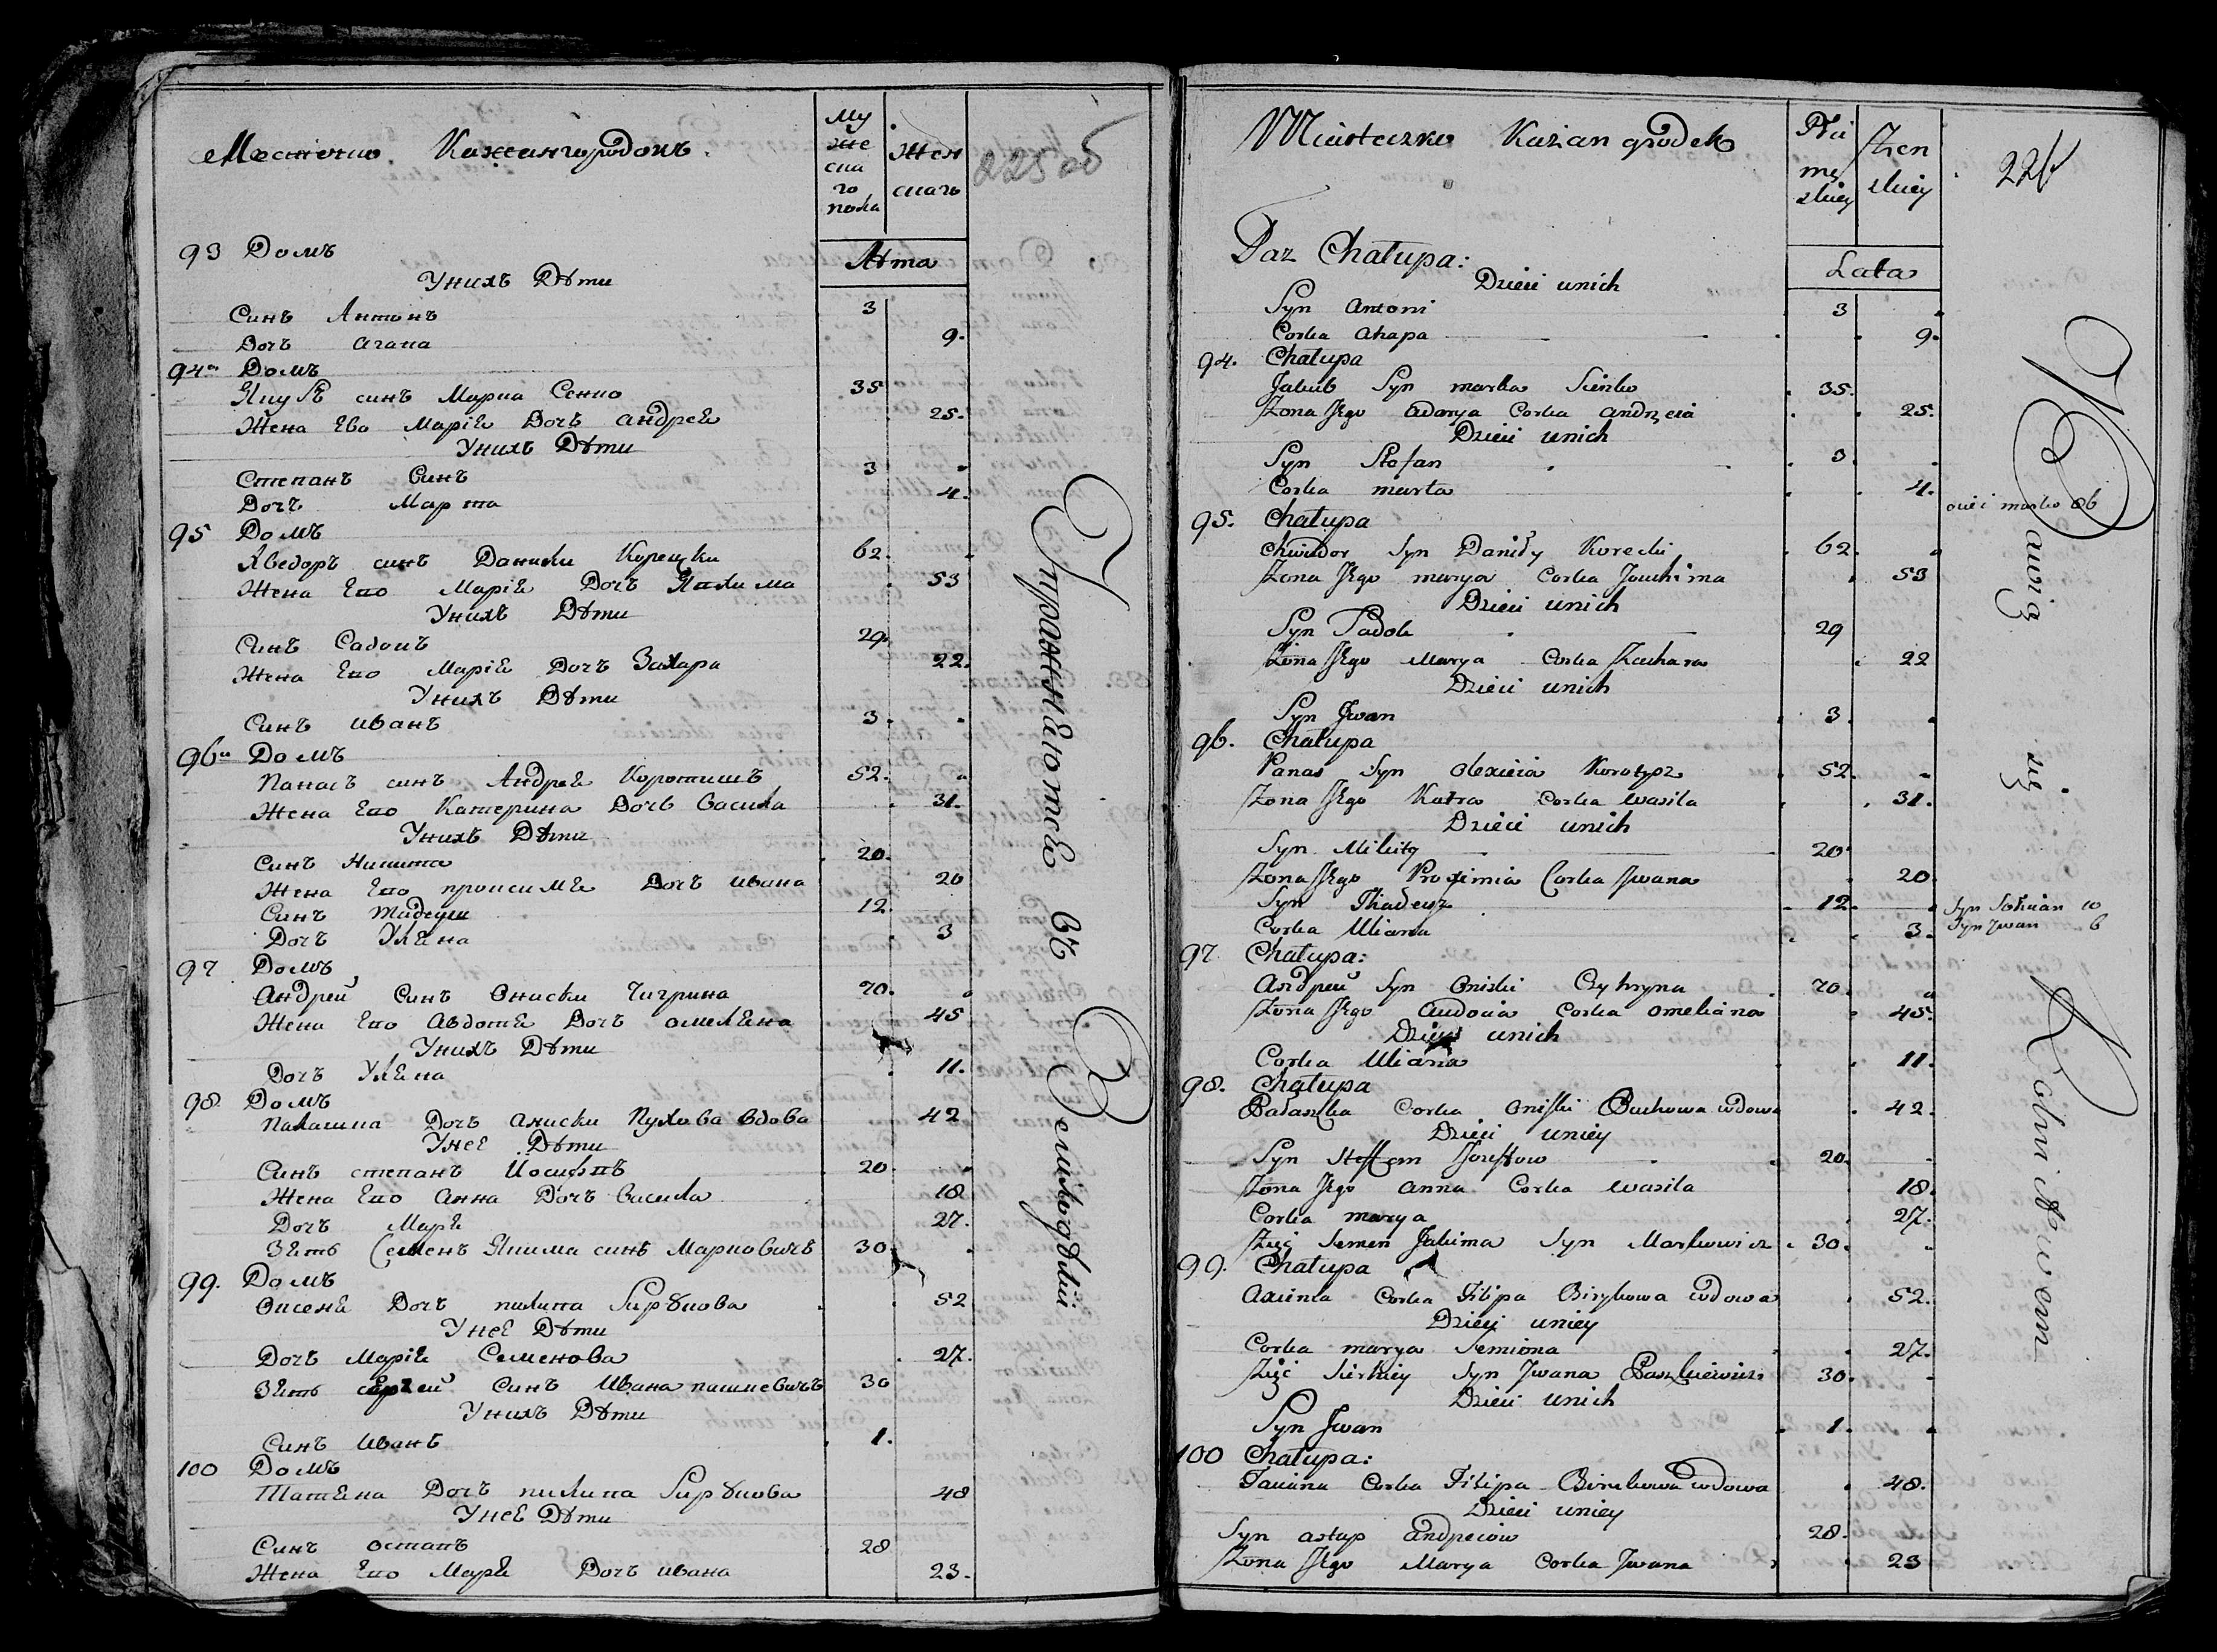 Местечко Кажангородокъ.
Му
же
ска
го
пола
Жен
скаго
225 об
Лѣта
93 Домъ
Унихъ Дѣти
Синъ Антонъ 3
Дочъ Агапа 9.
94. Домъ
Якубъ синъ Марка Сенко 35
Жена Ево Марія Дочъ андрея 25.
Унихъ Дѣти
Степанъ Синъ 3
Дочъ Марта 4.
95 Домъ
Хведоръ синъ Данили Корецки 62.
Жена Его Марія Дочъ Яхима 53
Унихъ Дѣти
Синъ Садокъ 29.
Жена Его Марія Дочъ Захара 22.
Унихъ Дѣти
Синъ иванъ 3.
96 Домъ
Панасъ синъ Андрея Коротишъ 52.
Жена Его Катерина Дочъ василя 31.
Унихъ Дѣти
Синъ Никита 20.
Жена Его проксимя Дочъ ивана 20
Синъ тадеуш 12.
Дочъ Уляна 3
97 Домъ
Андрей Синъ Ониски Чигрина 70.
Жена Его Авдотя Дочъ омеляна 45
Унихъ Дѣти
Дочъ Уляна 11.
98 Домъ
Палашка Дочъ Аниски Пухова вдова 42
Унеё Дѣти
Синъ степанъ Йосифпъ 20.
Жена Его Анна Дочъ василя 18
Дочъ Маря 27.
Зять Семенъ Якима синъ Марковичъ 30
99. Домъ
Оксеня Дочъ пилипа Бирукова 52
Унеё Дѣти
Дочъ Марія Семенова 27.
Зять сергей Синъ Ивана пашкевичъ 30
Унихъ Дѣти
Синъ иванъ 1.
100 Домъ
Татяна Дочъ пилипа Бирукова 48
Унеё Дѣти
Синъ остапъ 28
Жена Его Маря Дочъ ивана 23.
Упражняются въ Земледѣліи.
Miasteczko Każangrodek
Płci
mę
skiey
Żen
skiey
Lata
Taż Chałupa:
Dzieci unich
Syn Antoni 3
Corka Ahapa 9.
94. Chałupa
Jakub Syn marka Sieńko 35.
Żona Jego Marya Corka Andrzeia 25.
Dzieci unich
Syn Stefan 3.
Corka marta 4.
95. Chałupa
Chwiedor Syn Daniły Korecki 62.
Żona Jego marya Corka Jouchima 53
Dzieci unich
Syn Sadok 29
Żona Jego Marya Corka Zachara 22
Dzieci unich
Syn Jwan 3.
96. Chałupa
Panas Syn Olexieia Korotysz 52.
Żona Jego Katra Corka wasila 31.
Dzieci unich
Syn Mikita 20
Żona Jego Proximia Corka Jwana 20.
Syn Thadeusz 12. Syn 10
Corka Uliana 3. Syn Jwan 6
97. Chałupa:
Andrzeii Syn Oniski Czyhryna 70.
Żona Jego Audocia Corka omeliana 45.
Dzieci unich
Corka Uliana 11.
98. Chałupa
Pałaszka Corka Oniski Puchowa wdowa 42.
Dzieci uniey
Syn Steffan Jozefow 20.
Żona Jego anna Corka wasila 18.
Corka marya 27.
Zięć Semen Jakima Syn Markowicz 30.
99. Chałupa
Axinia Corka Filipa Birukowa wdowa 52.
Dzieci uniey
Corka marya Semiona 27.
Zięć Sierhiey Syn Jwana Paszkiewicz 30.
Dzieci unich
Syn Jwan 1.
100 Chałupa:
Taciana Corka Filipa Birukowa wdowa 48.
Dzieci uniey
Syn astap andrzeiow 28.
Żona Jego Marya Corka Jwana 23
Bawią się Rolnictwem